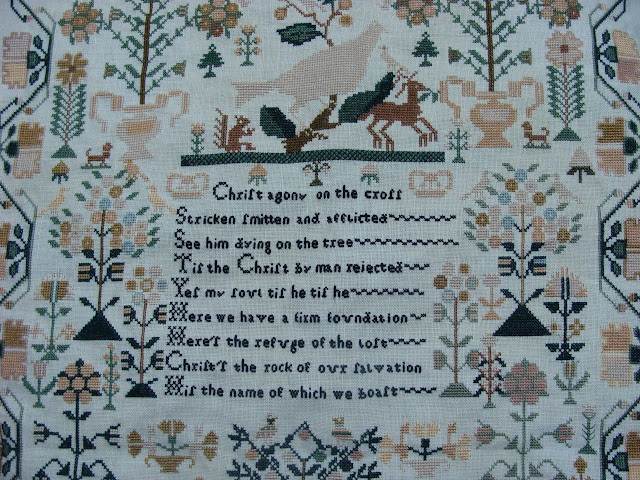 Chriſt agony on the croſſ
Stricken ſmitten and afflicted
See him dying on the tree
Tiſ the Chriſt by man rejected
Yeſ my ſoul tiſ he tiſ he
Here we have a firm foundation
Here'ſ the refuge of the loſt
Chriſt'ſ the rock of our ſalvation
Hiſ the name of which we boaſt